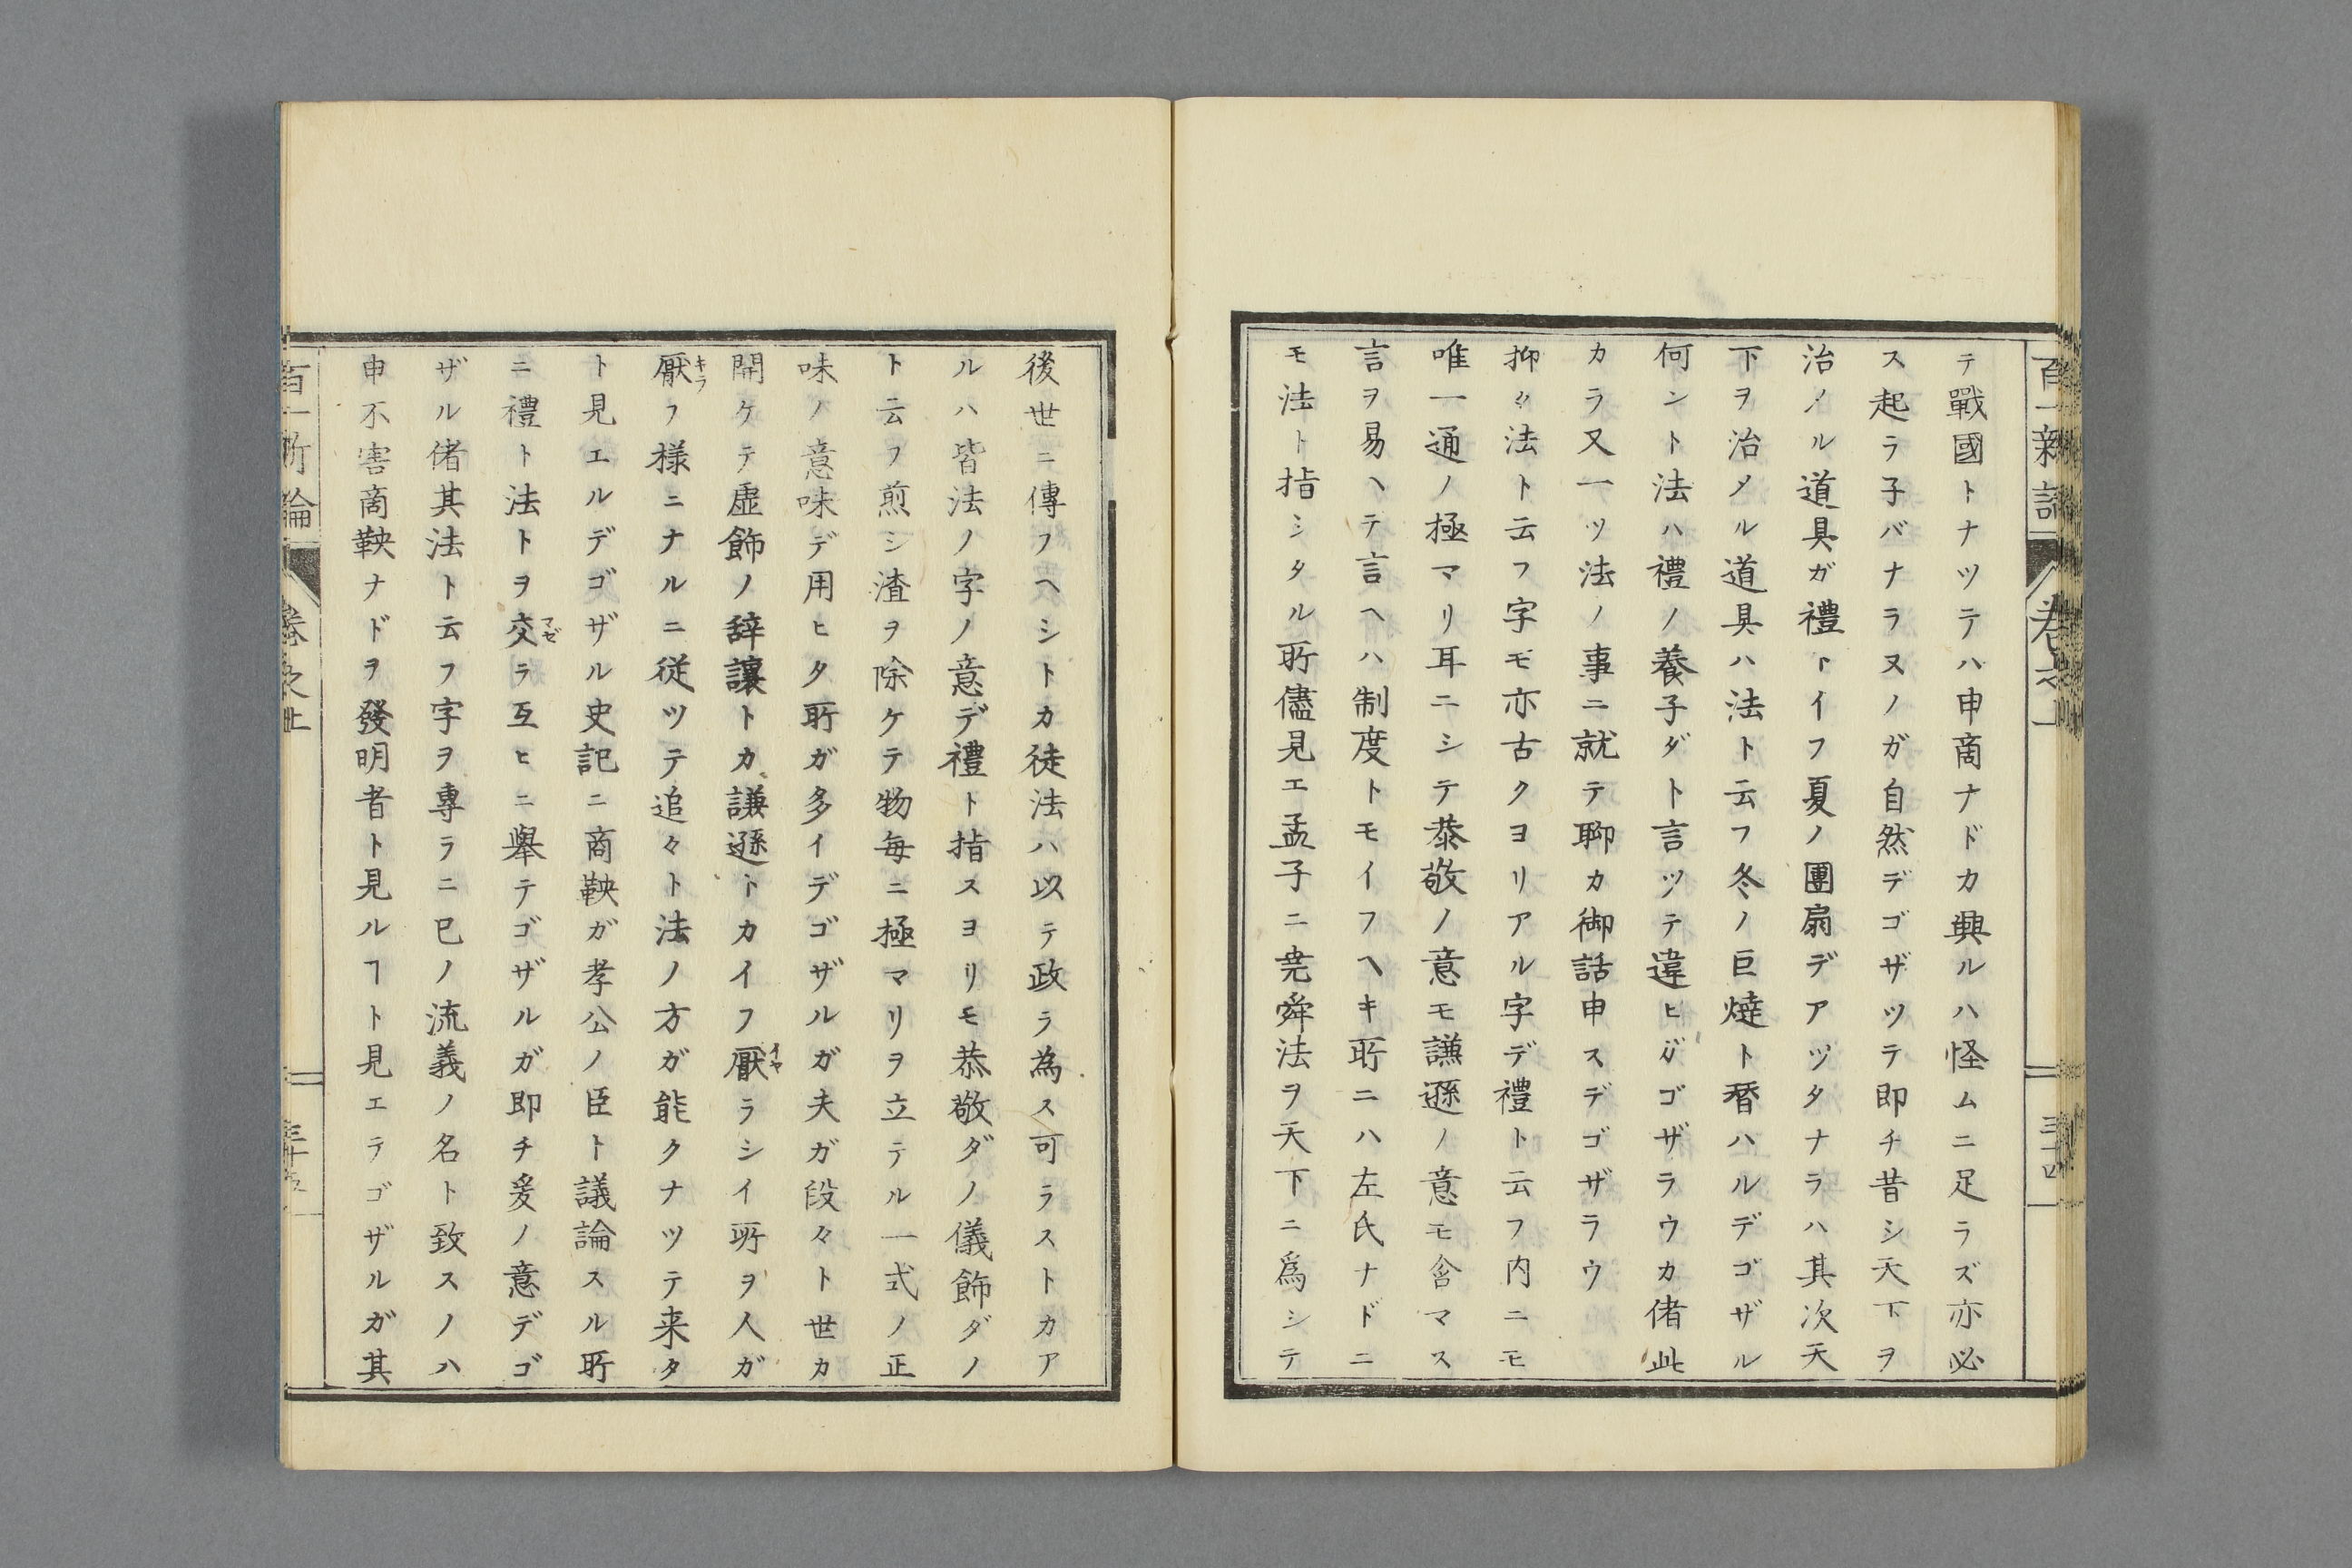 テ戰國トナツテハ申商ナドカ興ルハ怪ムニ足ラズ亦必
ス起ラ子バナラヌノガ自然デゴザツテ即チ昔シ天下ヲ
治ノル道具ガ禮トイフ夏ノ團扇デアツタナラハ其次天
下ヲ治メル道具ハ法ト云フ冬ノ巨燵ト替ハルデゴザル
何ント法ハ禮ノ養子ダト言ツテ違ヒガゴザラウカ偖此
カラ又一ツ法ノ事ニ就テ聊カ御話申スデゴザラウ
抑々法ト云フ字モ亦古クヨリアル字デ禮ト云フ内ニモ
唯一通ノ極マリ耳ニシテ恭敬ノ意モ謙遜ノ意モ含マス
言ヲ易ヘテ言ヘハ制度トモイフヘキ所ニハ左氏ナドニ
モ法ト指シタル所儘見エ孟子ニ尭舜法ヲ天下ニ為シテ
後世ニ傳フヘシトカ徒法ハ以テ政ラ為ス可ラストカア
ルハ皆法ノ字ノ意デ禮ト指スヨリモ恭敬ダノ儀飾ダノ
ト云フ煎シ渣ヲ除ケテ物毎ニ極マリヲ立テル一式ノ正
味ノ意味デ用ヒタ所ガ多イデゴザルガ夫ガ段々ト世カ
開ケテ虚飾ノ辞讓トカ謙遜トカイフ厭イヤラシイ所ヲ人ガ
厭キラフ様ニナルニ従ツテ追々ト法ノ方ガ能クナツテ来タ
ト見エルデゴザル史記ニ商鞅ガ孝公ノ臣ト議論スル所
ニ禮ト法トヲ交マゼラ互ヒニ舉テゴザルガ即チ爰ノ意デゴ
ザル偖其法ト云フ字ヲ専ラニ已ノ流義ノ名ト致スノハ
申不害商鞅ナドヲ發明者ト見ルヿト見エテゴザルガ其
百一新論
卷之上